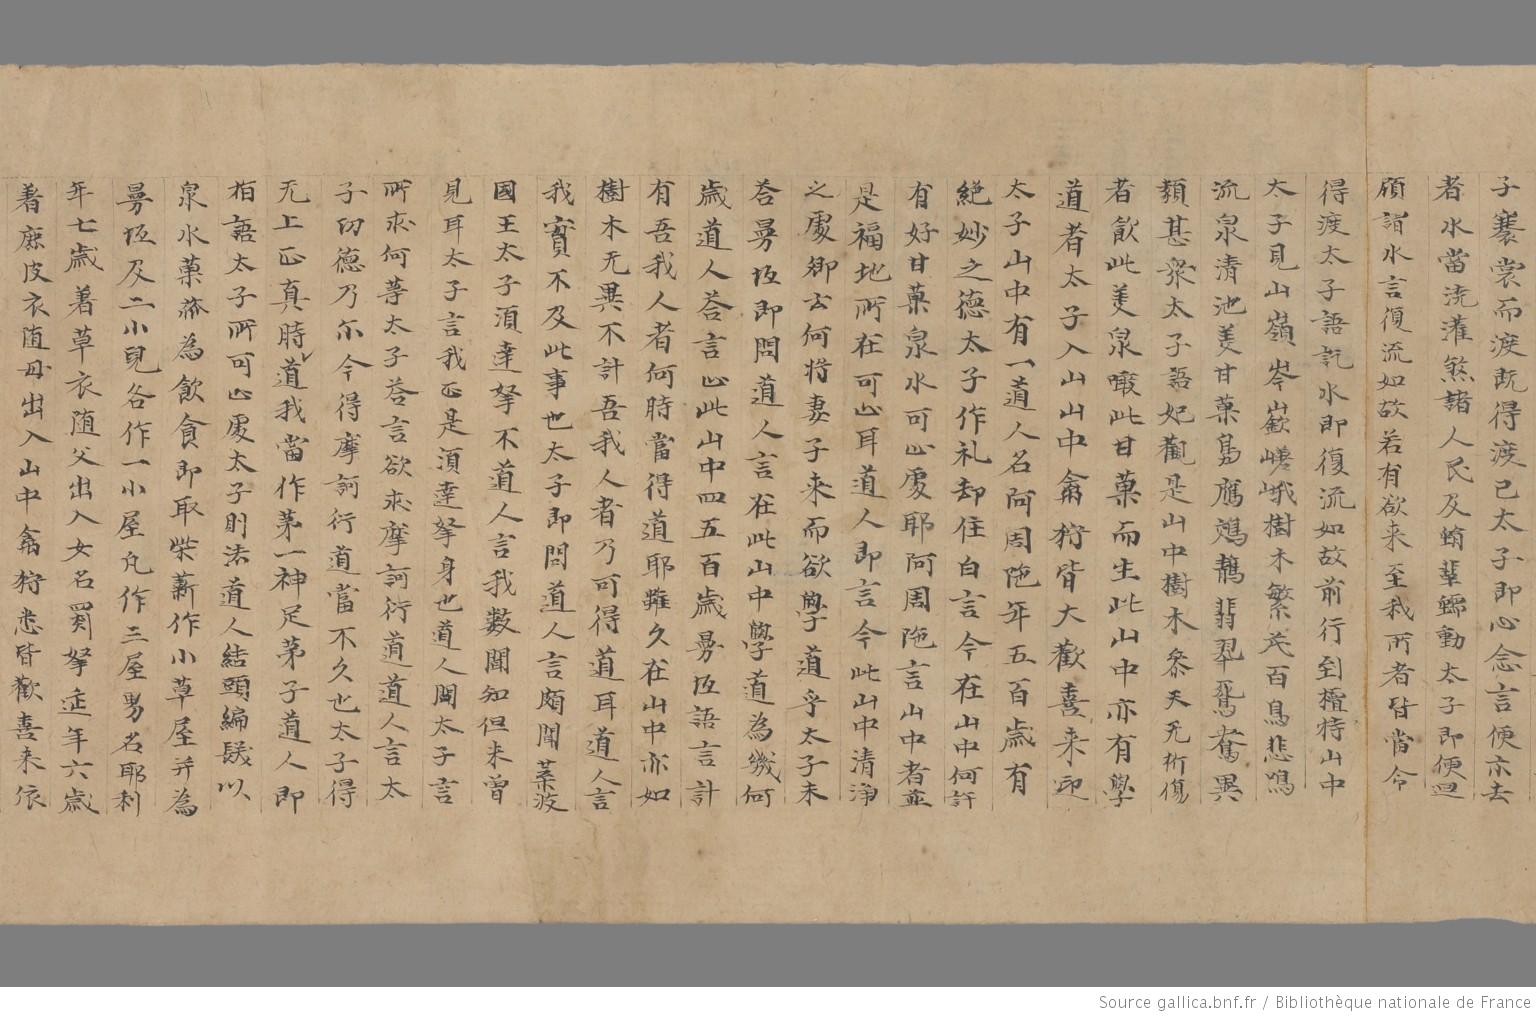 子褰裳而渡既得渡已太子即心念言便尒去
者水當澆灌煞諸人民及蜎蜚蠕動太子即便迴
頋謂水言復流如故若有欲来至我所者皆當令
得渡太子語訖水即復流如故前行到檀特山中
太子見山嶺岑嶔嵯峨樹木繁茂百鳥悲鳴
流泉清池羙甘菓鳬鴈鵁鶄翡翠鴛鴦異
類甚衆太子語妃觀是山中樹木叅天无折傷
者飲此羙泉噉此甘菓而生此山中亦有學
道者太子入山山中禽狩皆大歡喜来迎
太子山中有一道人名阿周陁年五百歳有
絕妙之德太子作礼却住白言今在山中何許
有好甘菓泉水可止處耶阿周陁言山中者並
是福地所在可止耳道人即言今此山中清淨
之處卿云何將妻子来而欲學道乎太子未
荅曼坻即問道人言在此山中學道為幾何
歳道人荅言止此山中四五百歳曼坻語言計
有吾我人者何時當得道耶雖久在山中亦如
樹木无異不計吾我人者乃可得道耳道人言
我實不及此事也太子即問道人言頗聞葉波
國王太子湏達拏不道人言我數聞知但未曾
見耳太子言我正是湏達拏身也道人聞太子言
所求何等太子荅言欲求摩訶衍道道人言太
子㓛德乃尒今得摩訶衍道當不久也太子得
无上正真時道我當作苐一神足苐子道人即
指語太子所可止處太子則法道人結頭編髮以
泉水菓蓏為飲食即取柴薪作小草屋并為
曼坻及二小兒各作一小屋凡作三屋男名耶利
年七歳著草衣随父出入女名罽拏延年六歳
著鹿皮衣随母出入山中禽狩悉皆歡喜来依
Source gallica.bnf.fr / Bibliothèque nationale de France